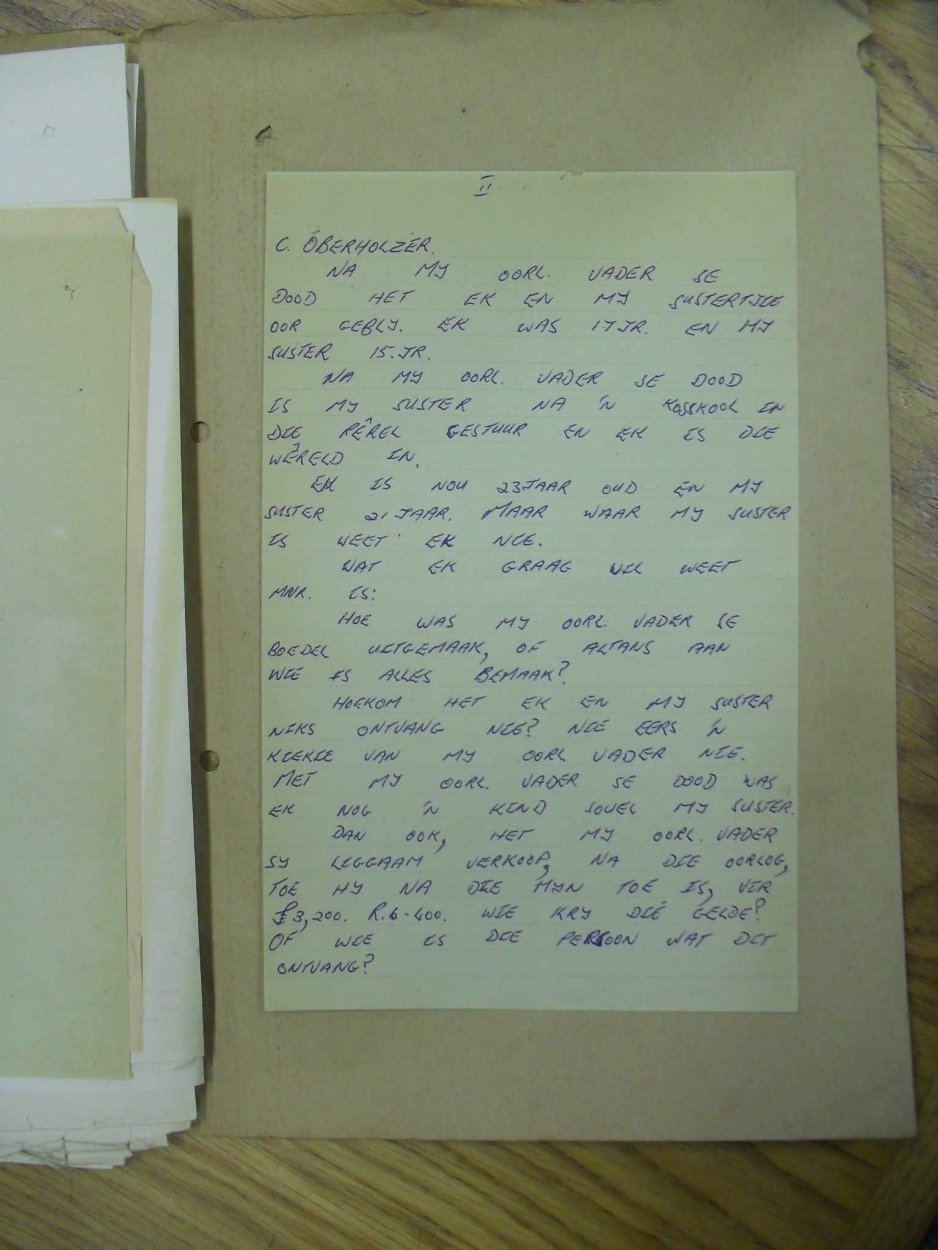 II
C. OBERHOLZER.
NA MY OORL. VADER SE
DOOD HET EK EN MY SUSTERTJIE
OOR GEBLY. EK WAS 17 JR. EN MY
SUSTER 15. JR.
NA MY OORL. VADER SE DOOD
IS MY SUSTER NA 'N KOSSKOOL IN
DIE PÊREL GESTUUR EN EK IS DIE
WÊRELD IN.
EK IS NOU 23 JAAR OUD EN MY
SUSTER 21 JAAR. MAAR WAAR MY SUSTER
IS WEET EK NIE.
WAT EK GRAAG WIL WEET
MNR. IS:
HOE WAS MY OORL. VADER SE
BOEDEL UITGEMAAK, OF ALTANS AAN
WIE IS ALLES BEMAAK?
HOEKOM HET EK EN MY SUSTER
NIKS ONTVANG NIE? NIE EERS 'N
KIEKIE VAN MY OORL VADER NIE.
MET MY OORL. VADER SE DOOD WAS
EK NOG 'N KIND SOWEL MY SUSTER.
DAN OOK, HET MY OORL. VADER
SY LIGGAAM VERKOOP, NA DIE OORLOG,
TOE HY NA DIE MYN TOE IS, VIR
£3,200. R.6-400. WIE KRY DIÉ GELDE?
OF WIE IS DIE PERSOON WAT DIT
ONTVANG?